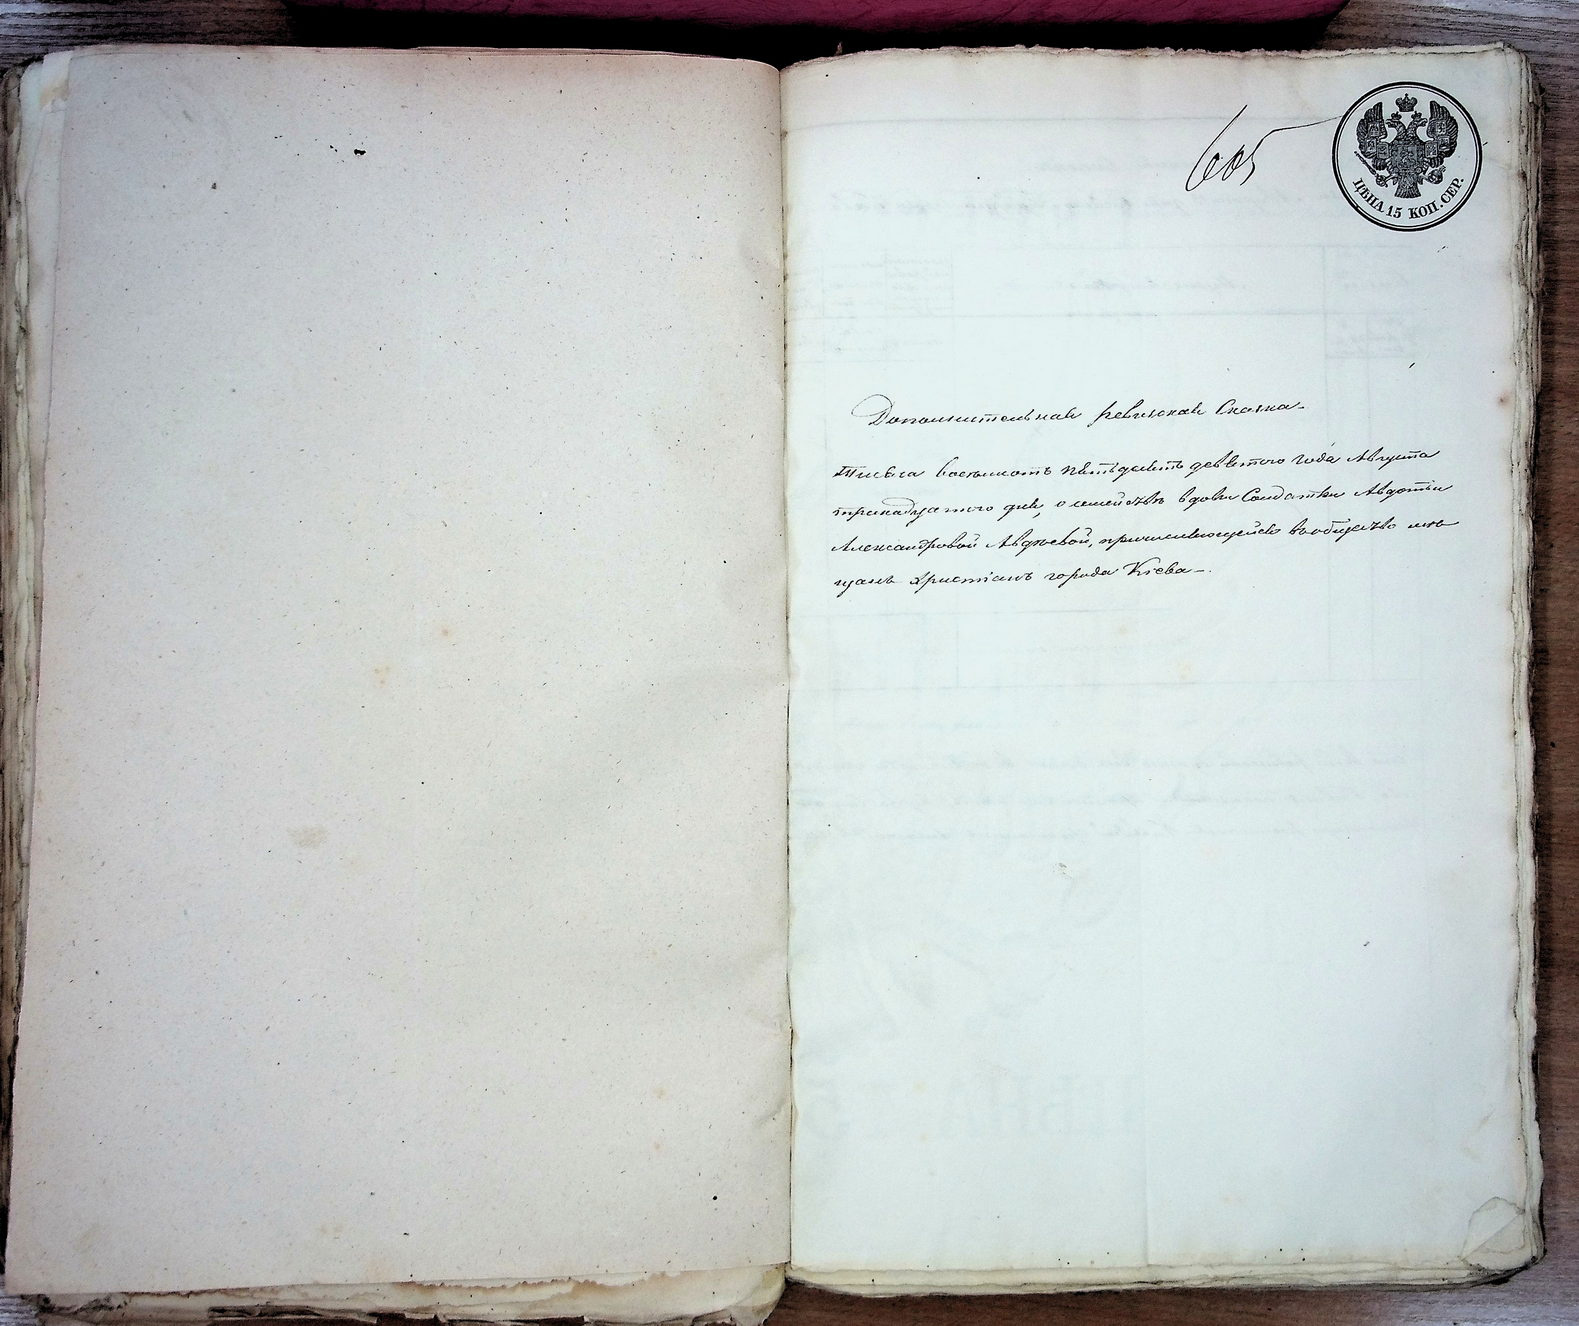 605
ЦѢНА 15 КОП. СЕР.
Дополнительная ревизская Сказка
Тысяча восемьсотъ пятьдесятъ девятого года Августа
тринадцатого дня, о семействѣ вдовы Солдатки Авдотьи
Александровой Авдѣевой, причисляющейся въ общество мѣ
щанъ христіанъ города Кіева